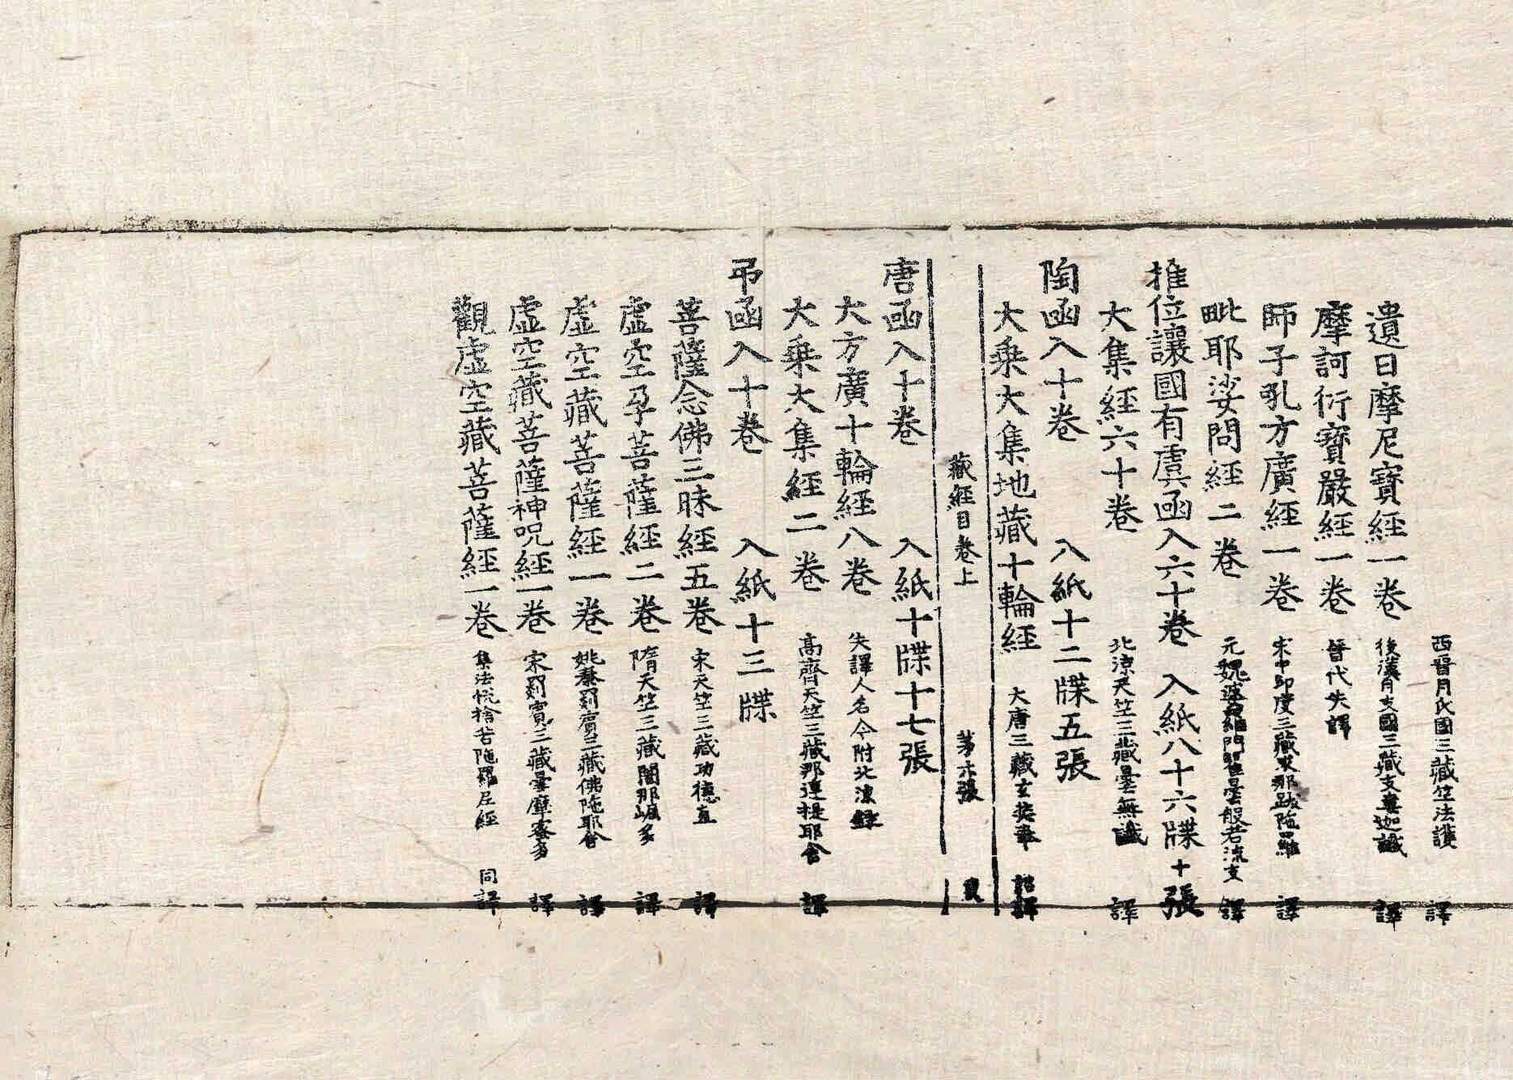 西晉月氏國三藏竺法護 譯
遺日摩尼寶經一卷 後漢月支國三藏支婁迦讖 譯
摩訶衍寶嚴經一卷 晉代失譯
師子吼方廣經一卷 宋中印度三藏求那跋陁羅 譯
毗耶娑問經二卷 元魏婆羅門瞿曇般若流支 譯
推位讓國有虞函入六十卷 入紙八十六牒十張
大集經六十卷 北涼天竺三藏曇無讖 譯
陶函入十卷 入紙十二牒五張
大乘大集地藏十輪經 大唐三藏玄奘奉 詔譯
藏經目卷上 第六張
唐函入十卷 入紙十牒十七張
大方廣十輪經八卷 失譯人名今附北涼錄
大乘大集經二卷 高齊天竺三藏那連提耶舍 譯
弔函入十卷 入紙十三牒
菩薩念佛三昧經五卷 宋天竺三藏功德直 譯
虛空孕菩薩經二卷 隋天竺三藏闍那崛多 譯
虛空藏菩薩經一卷 姚秦罽賓三藏佛陁耶舍 譯
虛空藏菩薩神呪經一卷 宋罽賓三藏曇摩蜜多 譯
觀虛空藏菩薩經一卷 集法悅捨苦陁羅尼經 同譯